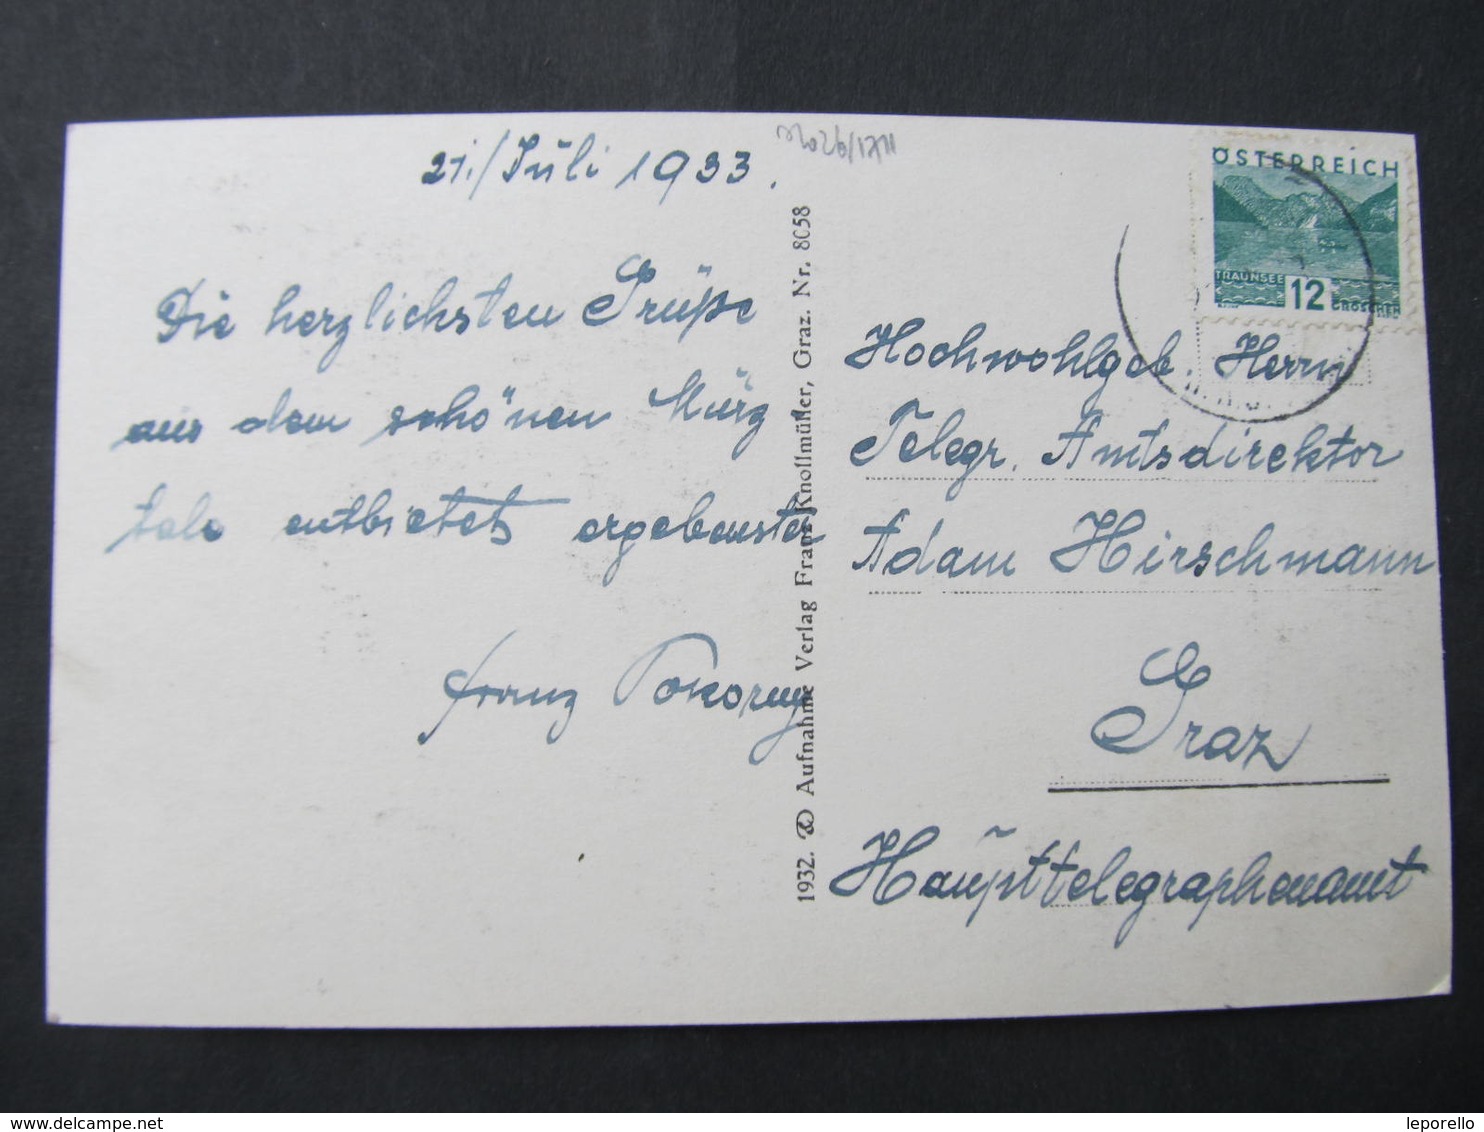 21./Juli 1933.
Die herzlichsten Grüße
aus dem schönen Mürz
tale entbietet ergebenster
Franz Pokorny
1932. Aufnahme Verlag Franz Knollmüller, Graz. Nr. 8058
ÖSTERREICH
TRAUNSEE
12
GROSCHEN
Hochwohlgeb. Herrn
Telegr. Amtsdirektor
Adam Hirschmann
Graz
Haupttelegraphenamt
www.delcampe.net
leporello